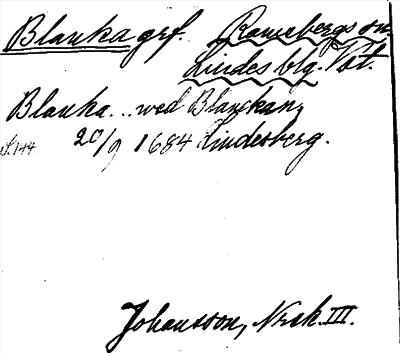 Blanka grf. Ramsbergs sn.
Lindes blg. Vstm.
Blanka... wed Blanckan,
S. 144 20/9 1684 Lindesberg.
Johansson, Nrsk. III.